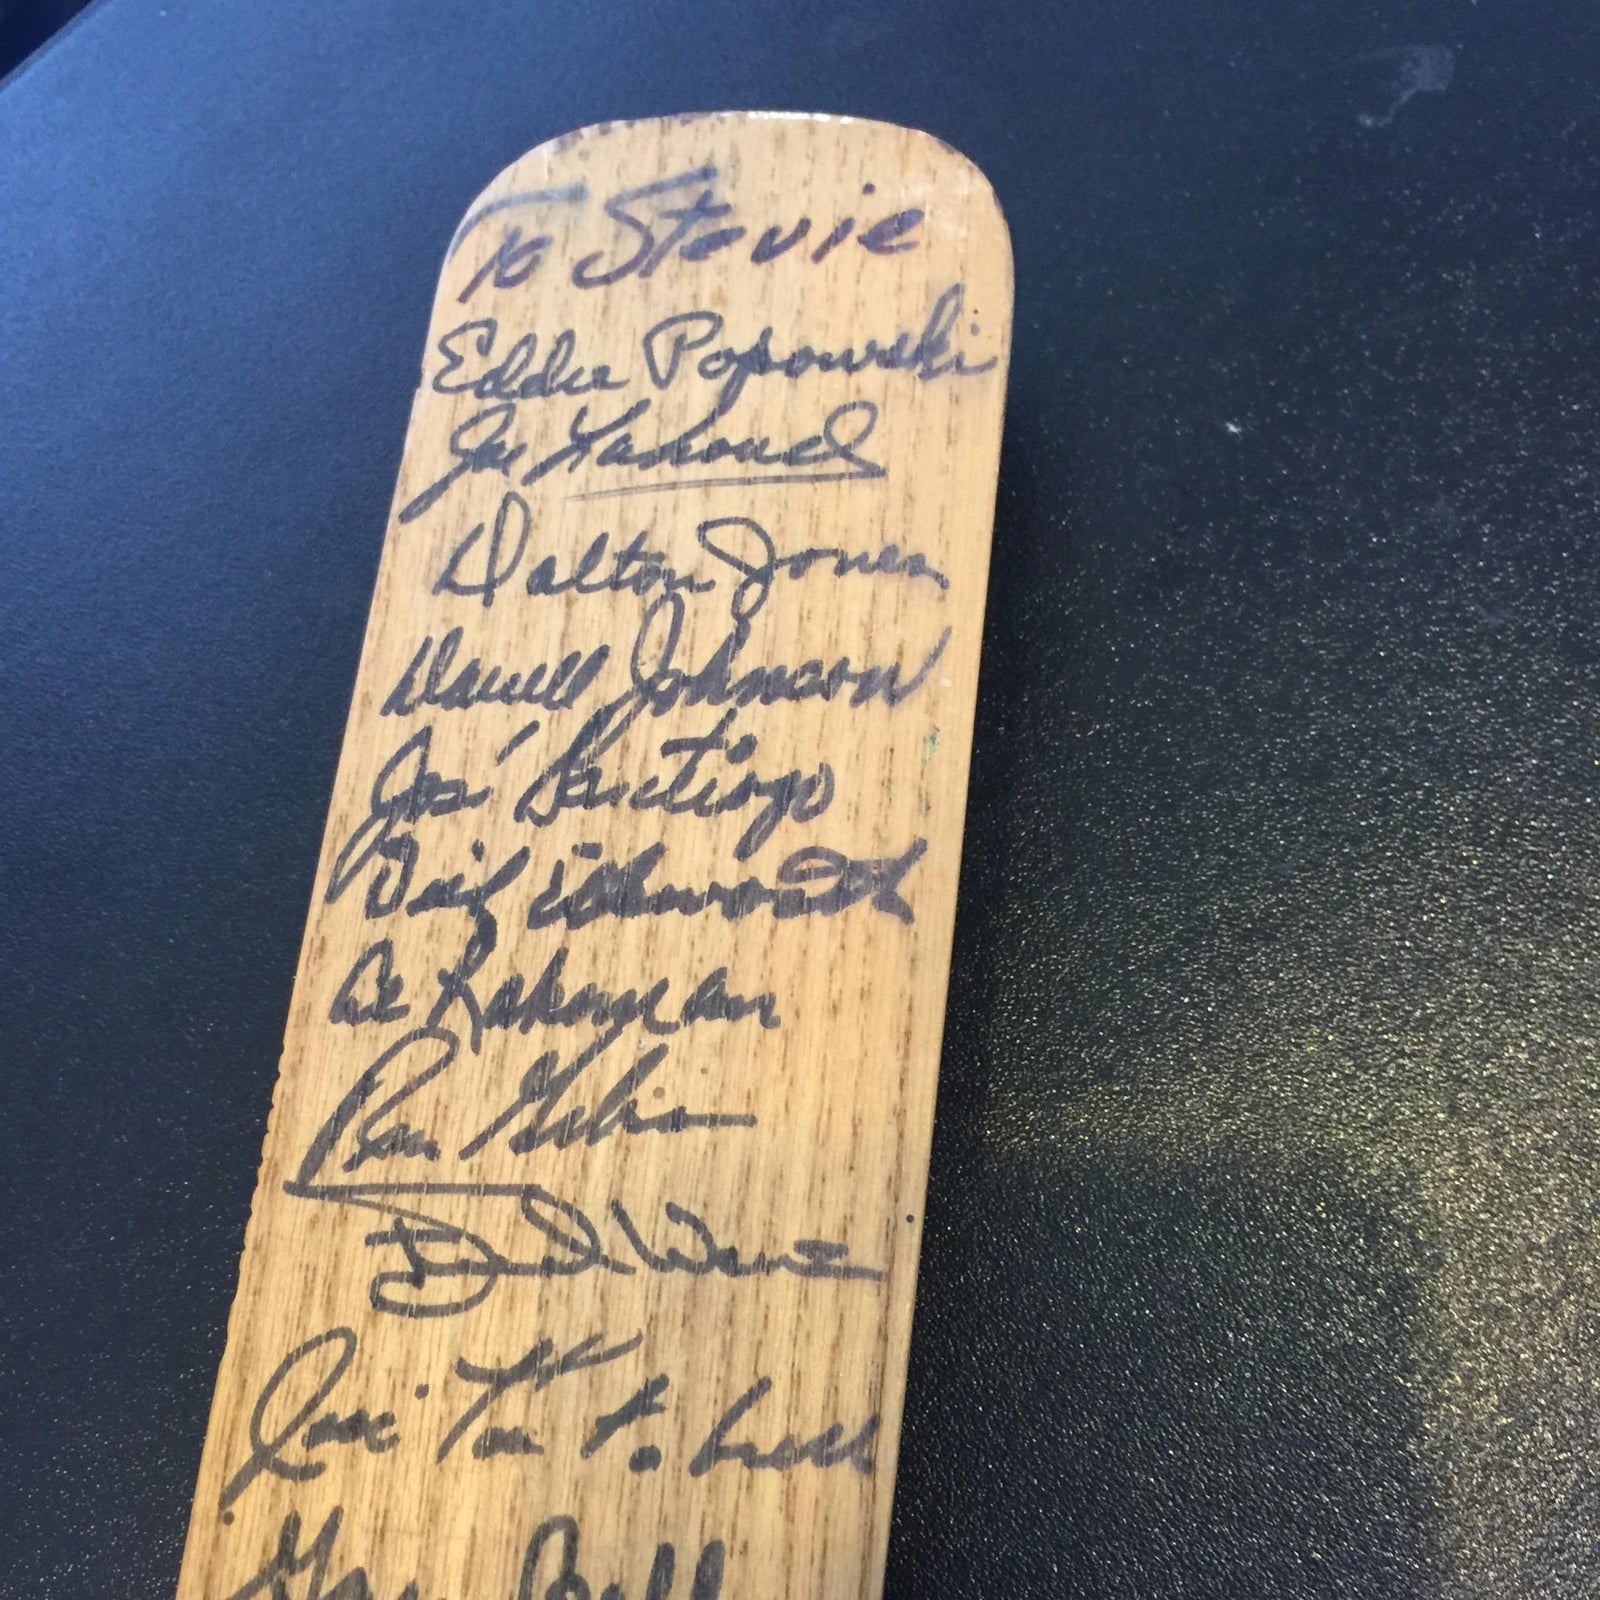 To Stevie
Eddie Popowski
Joe Lahoud
Dalton Jones
Darrell Johnson
José Santiago
Dick Ellsworth
Al Lakeman
Russ Gibson
Gary Bell